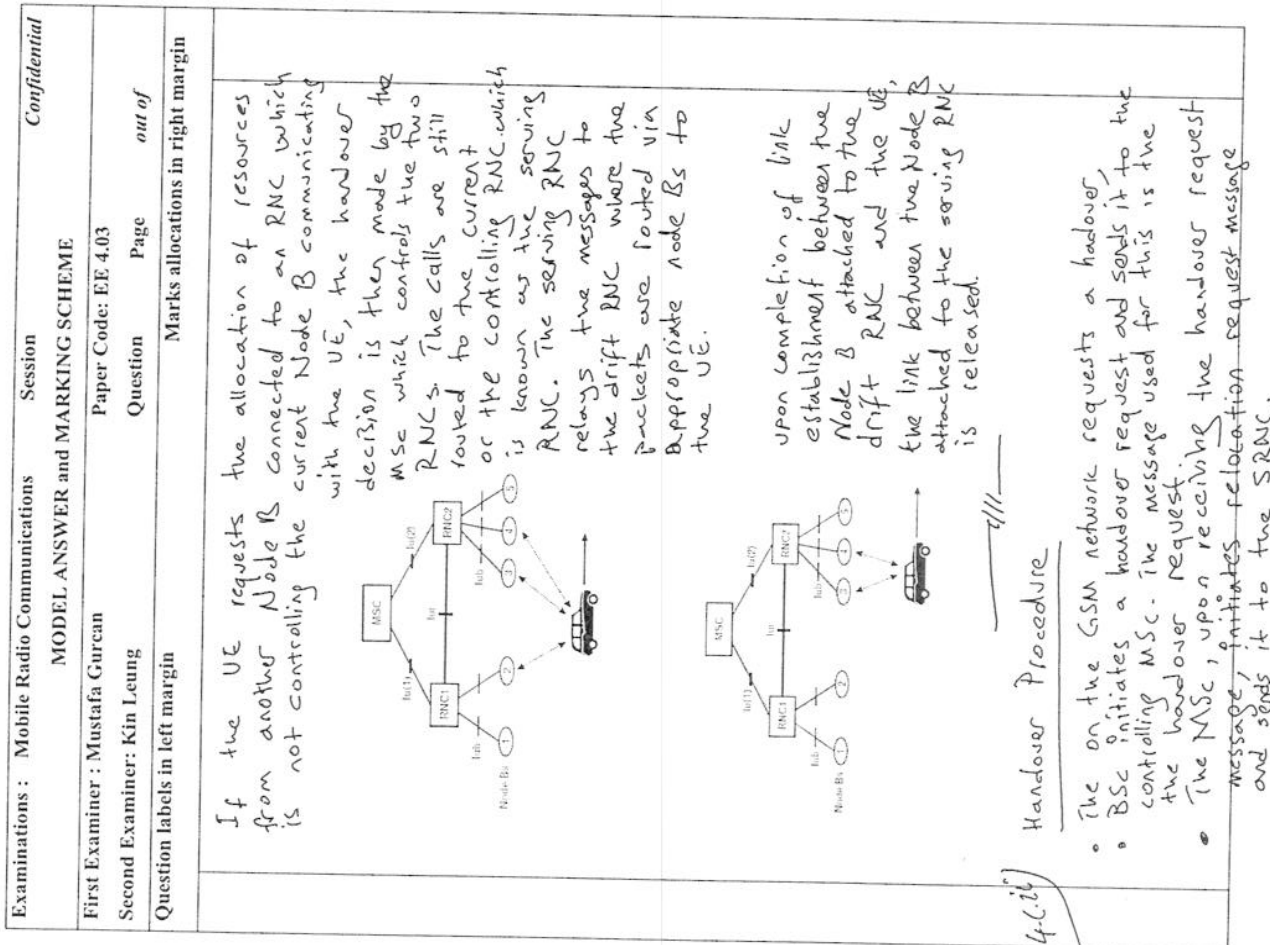 Examinations : Mobile Radio Communications Session Confidential
MODEL ANSWER and MARKING SCHEME
First Examiner : Mustafa Gurcan Paper Code: EE 4.03
Second Examiner: Kin Leung Question Page out of
Question labels in left margin Marks allocations in right margin
If the UE requests the allocation of resources
from another Node B connected to an RNC which
is not controlling the current Node B communicating
with the UE, the handover
decision is then made by the
MSC which controls the two
RNCs. The calls are still
routed to the current
or the controlling RNC.which
is known as the serving
RNC. The serving RNC
relays the messages to
the drift RNC where the
packets are routed via
appropriate node Bs to
the UE.
MSC
Iu(1)
Iu(2)
RNC1
Iur
RNC2
Iub
Iub
1
2
3
4
5
Node Bs
upon completion of link
establishment between the
Node B attached to the
drift RNC and the UE,
the link between the Node B
attached to the serving RNC
is released.
MSC
Iu(1)
Iu(2)
RNC1
Iur
RNC2
Iub
Iub
1
2
3
4
5
Node Bs
4-c.ii)
Handover Procedure
• The on the GSM network requests a hadover,
• BSC initiates a handover request and sends it to the
controlling MSC. The message used for this is the
the handover request.
• The MSC, upon receiving the handover request
message, initiates relocation request message
and sends it to the SRNC.